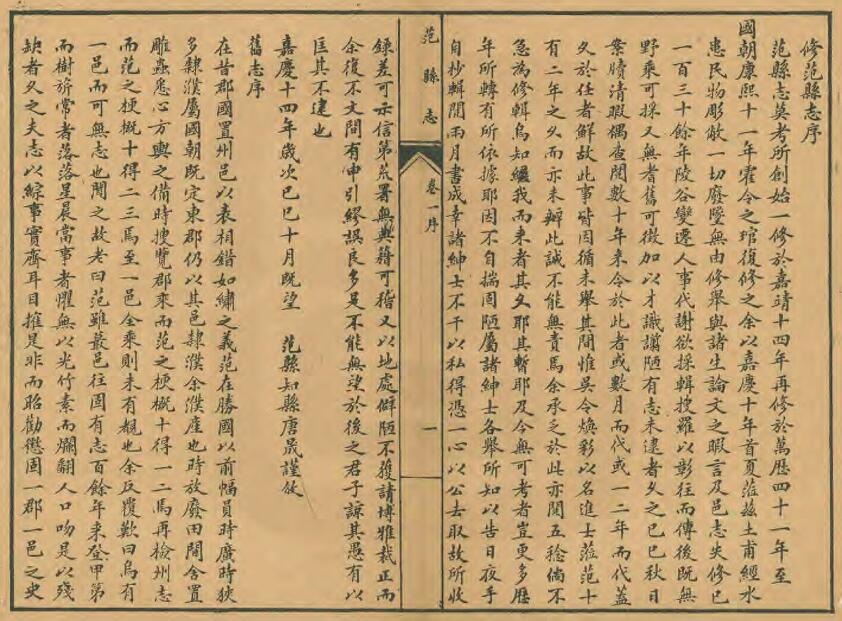 修范縣志序
范縣志莫考所創始一修於嘉靖十四年再修於萬歷四十一年至
國朝康熙十一年霍令之琯復修之余以嘉慶十年首夏蒞茲土甫經水
患民物彫敝一切廢墜無由修舉與諸生論文之暇言及邑志失修已
一百三十餘年陵谷變遷人事代謝欲採輯搜羅以彰往而傳後既無
野乘可採又無耆舊可徵加以才識謭陋有志未逮者久之己巳秋日
案牘清暇偶查閱數十年來令於此者或數月而代或一二年而代蓋
久於任者鮮故此事皆因循未舉其間惟吳令煥彩以名進士蒞范十
有二年之久而亦未辦此誠不能無責焉余承乏於此亦閱五稔倘不
急為修輯烏知繼我而來者其久耶其暫耶及今無可考者豈更多歷
年所轉有所依據耶因不自揣固陋屬諸紳士各舉所知以告日夜手
自抄輯閱兩月書成幸諸紳士不干以私得憑一心以公去取故所收
范縣志
卷一序
一
錄差可示信第荒署無典籍可稽又以地處僻陋不獲請博雅裁正而
余復不文間有申引繆誤良多是不能無望於後之君子諒其愚有以
匡其不逮也
嘉慶十四年歲次己巳十月既望 范縣知縣唐晟謹敘
舊志序
在昔郡國置州邑以表相錯如繡之義范在勝國以前幅員時廣時狹
多隸濮屬國朝既定東郡仍以其邑隸濮余濮產也時放廢田間舍置
雕蟲悉心方輿之備時搜覽郡乘而范之梗概十得一二焉再檢州志
而范之梗概十得二三焉至一邑全乘則未有覩也余反覆歎曰烏有
一邑而可無志也聞之故老曰范雖蕞邑往固有志百餘年來登甲第
而樹旂常者落落星晨當事者懼無以光竹素而爛翻人口吻是以殘
缺者久之夫志以綜事實齊耳目摧是非而昭勸懲固一郡一邑之史